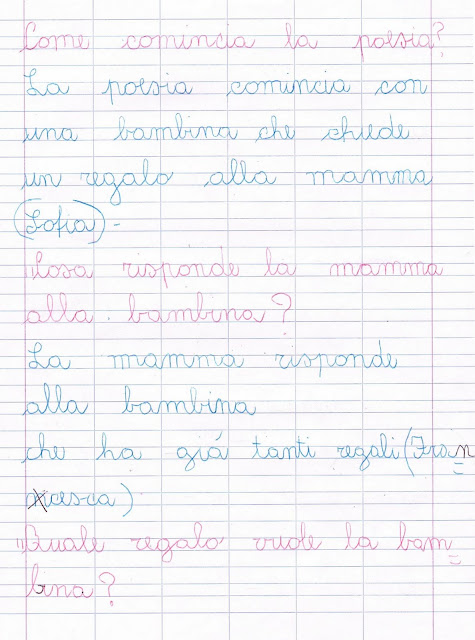 Come comincia la poesia?
La poesia comincia con
una bambina che chiede
un regalo alla mamma
(Sofia)-
Cosa risponde la mamma
alla bambina?
La mamma risponde
alla bambina
che ha giá tanti regali (Fran=
cesca)
"Quale regalo vuole la bam=
bina?